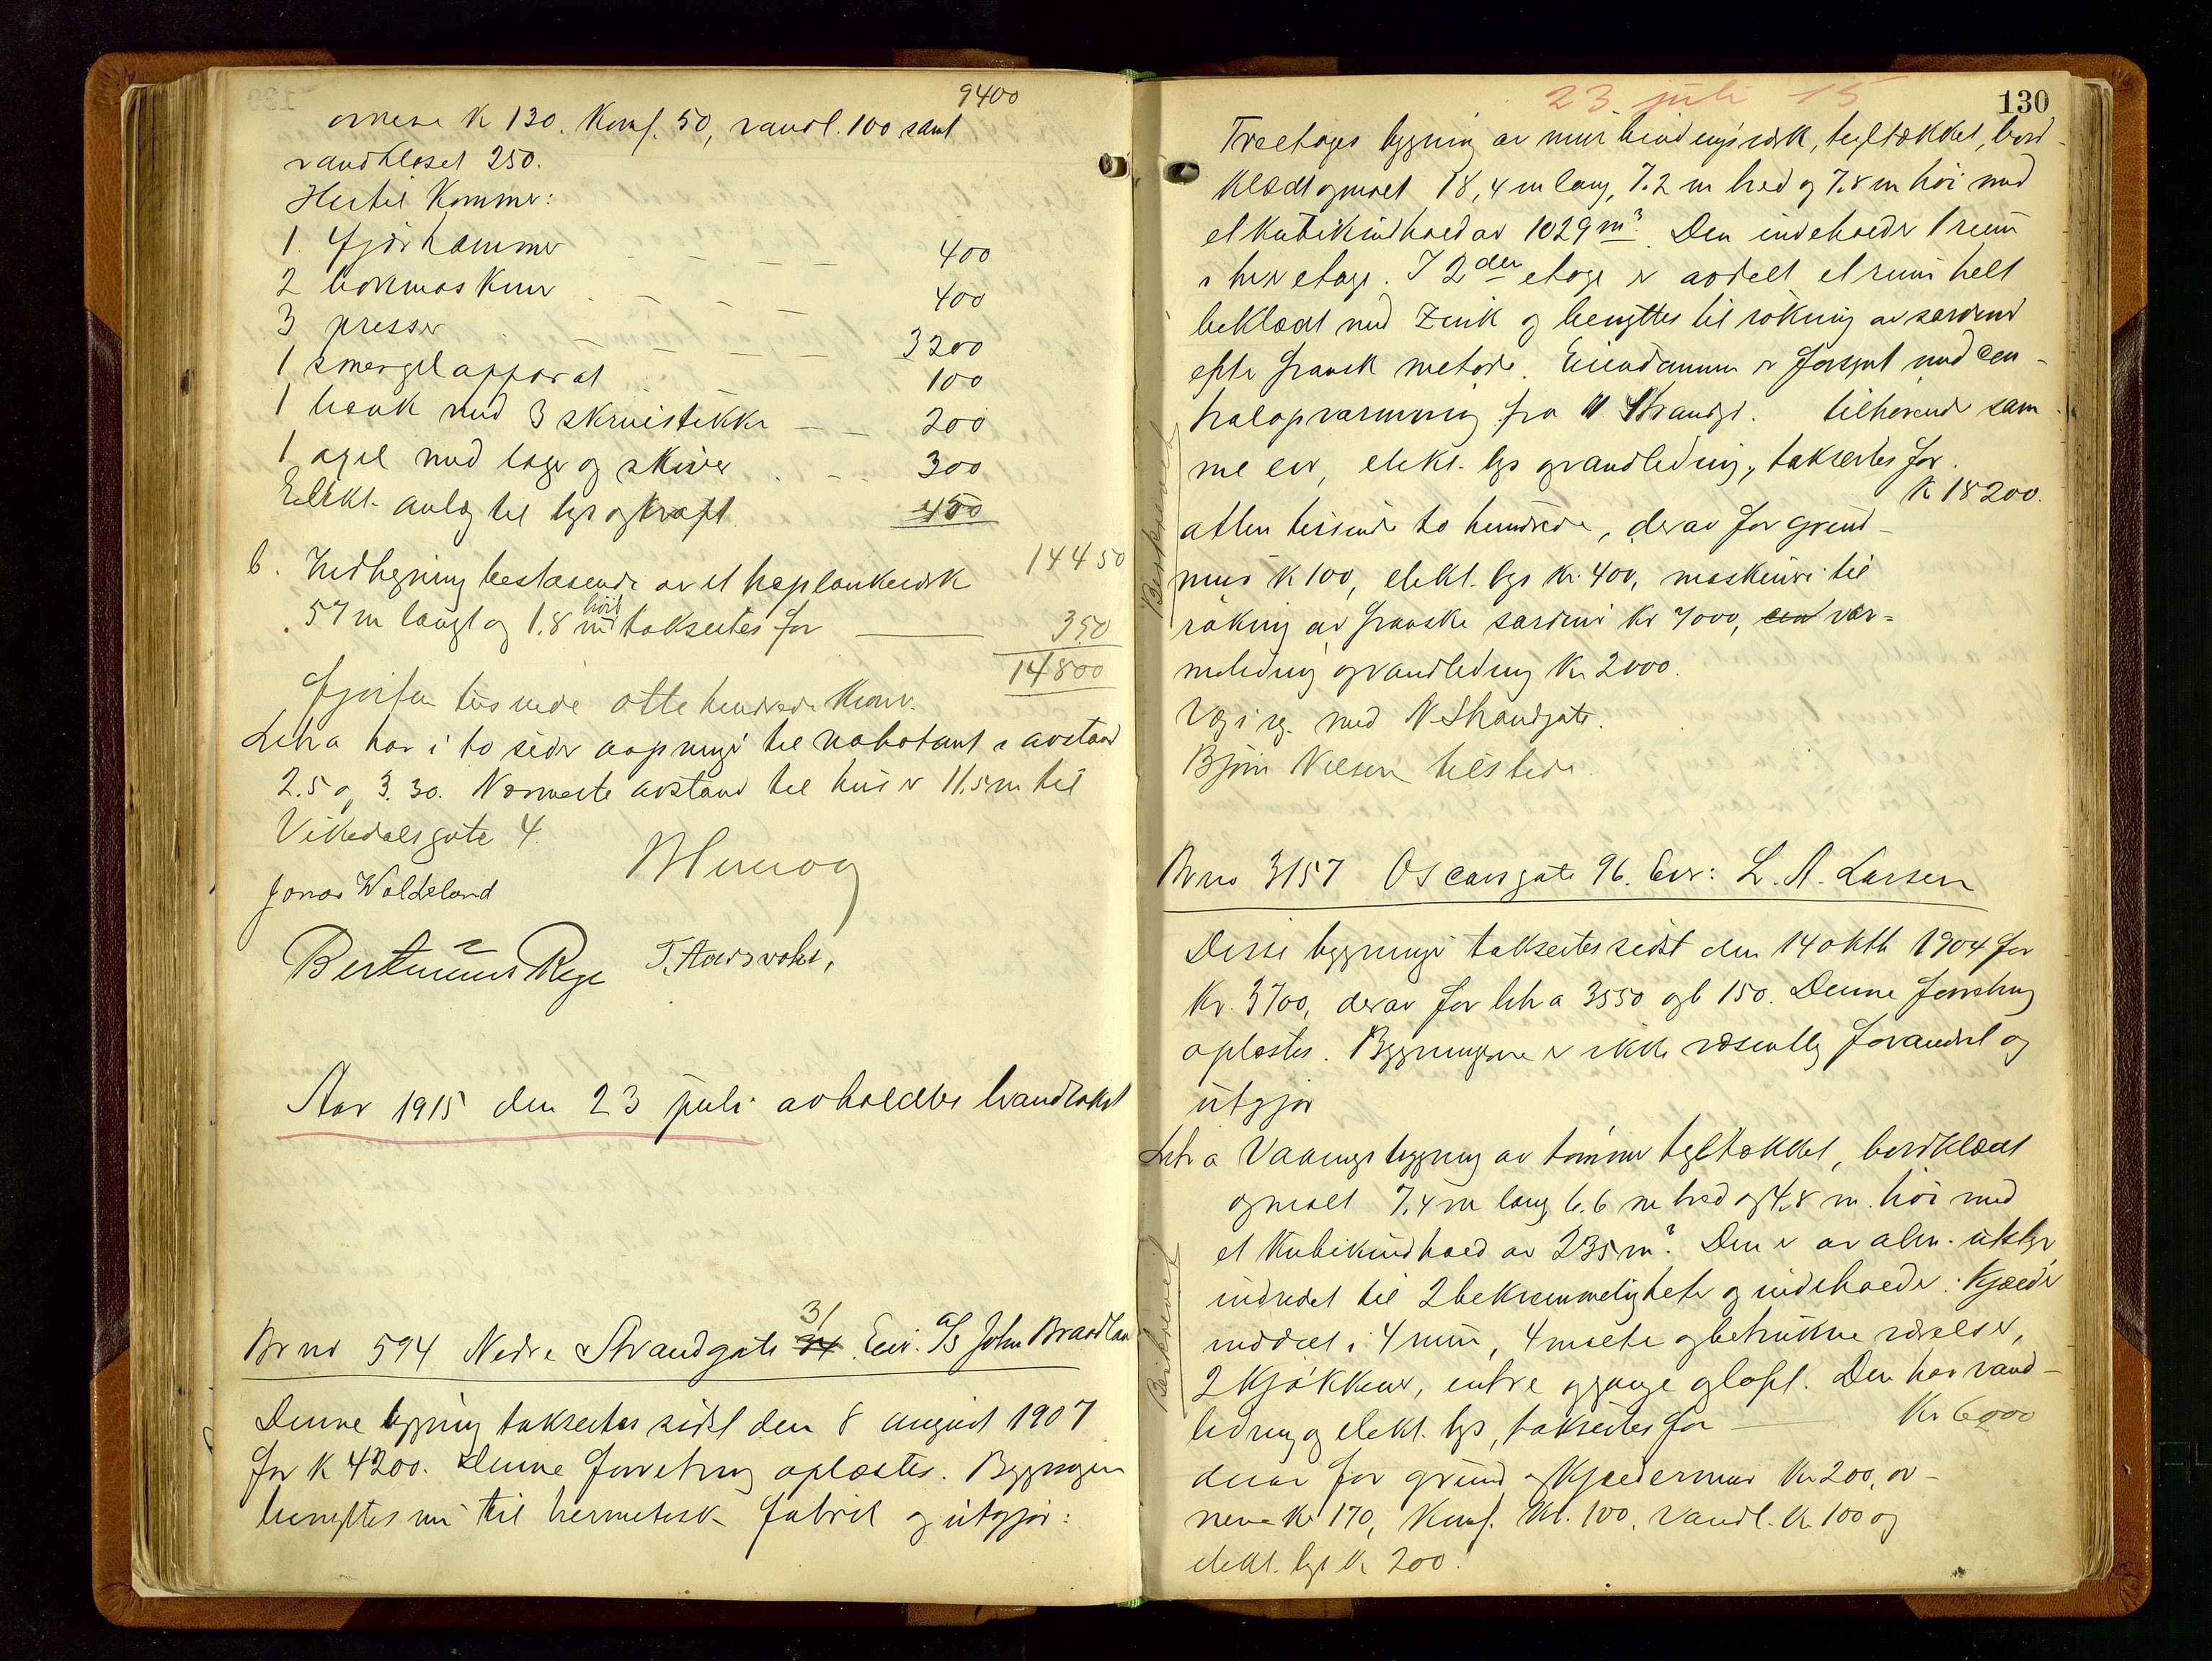 9400
ovnene K 130. Komf. 50, vandl. 100 samt
vandkloset 250.
Hertil kommer:
1 fjærhammer 400
2 boremaskiner 400
3 presser 3200
1 smergelapparat 100
1 bænk med 3 skruestikker 200
1 axel med lager og skiver 300
Elekt. anlæg til lys og kraft 450
14450
b. Indhegning bestaaende av et høplankeverk
57 m langt og 1.8 m høit taksertes for 350
14800
Fjorten tusende otte hundrede kroner.
Litra a har i to sider aapninger til nabotomt i avstand
2.5 og 3.30. Nærmeste avstand til hus er 11.5 m til
Vikedalsgate 4.
Jonas Woldeland
Bertinius Rege
Aar 1915 den 23 juli avholdtes brandtakst
Br no 594 Nedre Strandgate 31 Eier: A/S John Braadland
Denne bygning taksertes sidst den 8 august 1907
for K 4200. Denne forretning oplæstes. Bygningen
benyttes nu til hermetisk fabrik og utgjør:
23 juli 15
130
Treetages bygning av mur bindingsverk, tegltækket, bord-
klædt og malt 18,4 m lang, 7.2 m bred og 7.8 m høi med
et kubikindhold av 1029 m³. Den indeholder 1 rum
i hver etage. I 2den etage er avdelt et rum helt
beklædt med zink og benyttes til røkning av sardiner
efter fransk metode. Eiendommen er forsynt med cen-
tralopvarmning fra N Strandgt. tilhørende sam-
me eier, elekt. lys og vandledning, taksertes for
K 18200.
atten tusinde to hundrede, derav for grund-
mur K 100, elekt. lys kr. 400, maskiner til
røking av franske sardiner Kr 7000, var-
meledning og vandledning Kr 2000.
Væg i veg med N. Strandgate.
Bjørn Nilsen tilstede.
Beskrevet
Br no 3157 Oscarsgate 96. Eier: L. A. Larsen
Disse bygninger taksertes sidst den 14 oktb 1904 for
Kr. 3700, derav for litr a 3550 og b 150. Denne forretning
oplæstes. Bygningene er ikke væsentlig forandret og
utgjør
Litr a Vaaningsbygning av tømmer tegltækket, bordklædt
og malt 7.4 m lang 6.6 m bred og 4.8 m. høi med
et kubikindhold av 235 m³. Den er av alm. utstyr
indredet til 2 bekvemmeligheter og indeholder: kjælder
inddelt i 4 rum, 4 malte og betrukne værelser,
2 kjøkkener, entre og gange og loft. Den har vand-
ledning og elekt. lys, taksertes for Kr 6000
derav for grund og kjældermur Kr 200, ov-
nene Kr 170, Komf. Kr. 100, vandl. Kr 100 og
elekt. lys K 200.
Beskrevet